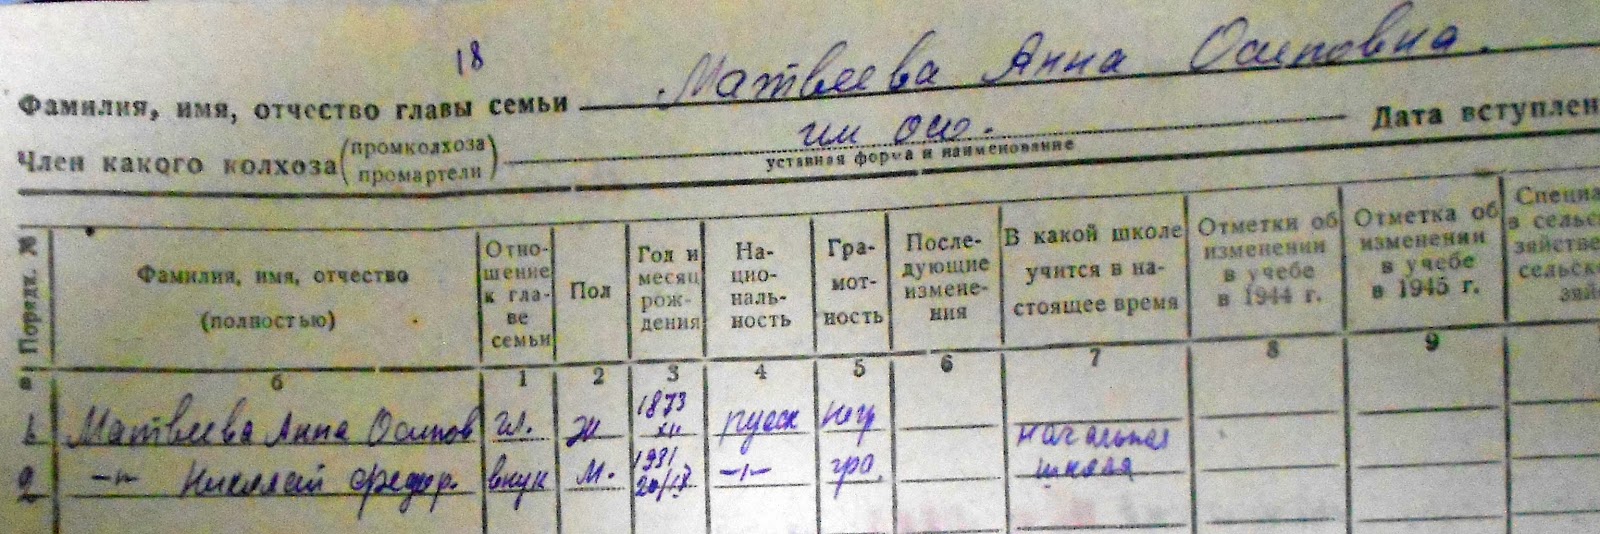 18
Фамилия, имя, отчество главы семьи Матвеева Анна Осиповна.
Член какого колхоза (промколхоза промартели) им ОСО. Дата вступлен
уставная форма и наименование
Порядк. № Фамилия, имя, отчество (полностью) Отно-шение к гла-ве семьи Пол Год и месяц рож-дения На-цио-наль-ность Гра-мот-ность После-дующие измене-ния В какой школе учится в на-стоящее время Отметки об изменении в учебе в 1944 г. Отметка об изменении в учебе в 1945 г. Специа в сельск зяйстве сельско зяй
а б 1 2 3 4 5 6 7 8 9
1. Матвеева Анна Осипов гл. ж 1873 XII русск негр
2 -"- Николай Федор. внук м. 1931 -"- гра. начальная школа